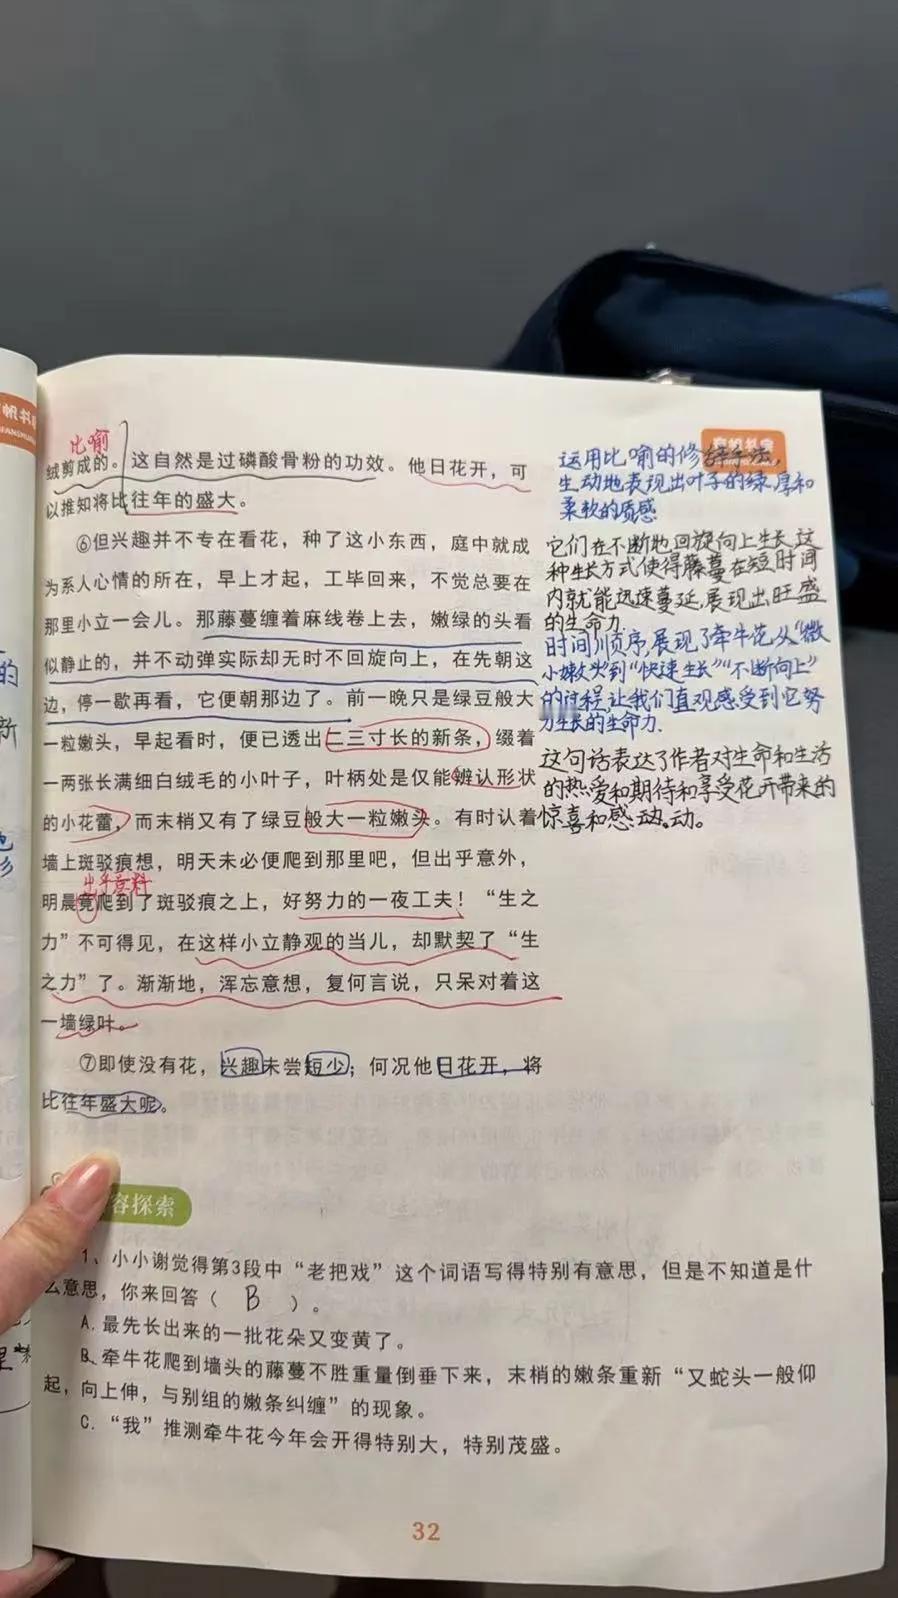 帆书
比喻
绒剪成的。这自然是过磷酸骨粉的功效。他日花开，可
以推知将比往年的盛大。
⑥但兴趣并不专在看花，种了这小东西，庭中就成
为系人心情的所在，早上才起，工毕回来，不觉总要在
那里小立一会儿。那藤蔓缠着麻线卷上去，嫩绿的头看
似静止的，并不动弹实际却无时不回旋向上，在先朝这
边，停一歇再看，它便朝那边了。前一晚只是绿豆般大
一粒嫩头，早起看时，便已透出二三寸长的新条，缀着
一两张长满细白绒毛的小叶子，叶柄处是仅能辨认形状
的小花蕾，而末梢又有了绿豆般大一粒嫩头。有时认着
墙上斑驳痕想，明天未必便爬到那里吧，但出乎意外，
出乎意料
明晨竟爬到了斑驳痕之上，好努力的一夜工夫！“生之
力”不可得见，在这样小立静观的当儿，却默契了“生
之力”了。渐渐地，浑忘意想，复何言说，只呆对着这
一墙绿叶。
⑦即使没有花，兴趣未尝短少；何况他日花开，将
比往年盛大呢。
运用比喻的修辞手法，
生动地表现出叶子的绿，厚和
柔软的质感
它们在不断地回旋向上生长，这
种生长方式使得藤蔓在短时间
内就能迅速蔓延，展现出旺盛
的生命力.
时间顺序，展现了牵牛花从“微
小嫩头”到“快速生长”“不断向上”
的过程，让我们直观感受到它努
力生长的生命力.
这句话表达了作者对生命和生活
的热爱和期待和享受花开带来的
惊喜和感动。动。
容探索
1、小小谢觉得第3段中“老把戏”这个词语写得特别有意思，但是不知道是什
么意思，你来回答（ B ）。
A.最先长出来的一批花朵又变黄了。
B.牵牛花爬到墙头的藤蔓不胜重量倒垂下来，末梢的嫩条重新“又蛇头一般仰
起，向上伸，与别组的嫩条纠缠”的现象。
C.“我”推测牵牛花今年会开得特别大，特别茂盛。
32
的
新